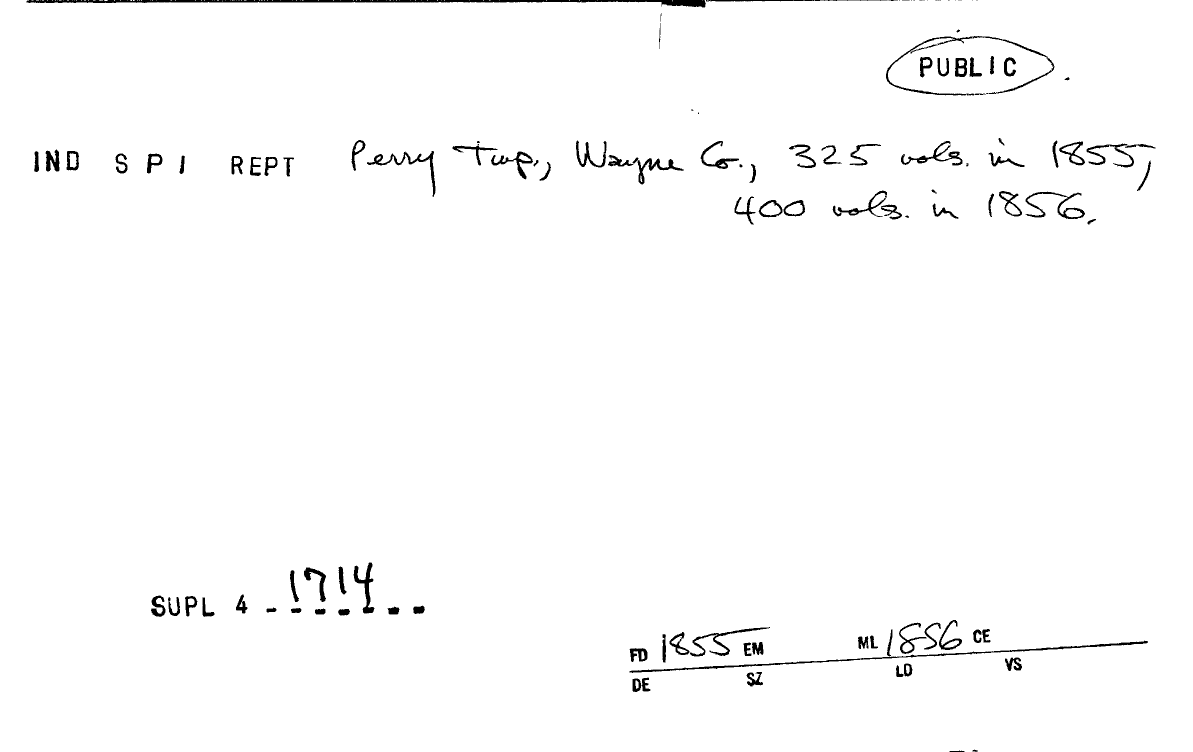 PUBLIC
IND S P I REPT Perry Twp., Wayne Co., 325 vols. in 1855,
400 vols. in 1856.
SUPL 4 - 1714
FD 1855 EM ML 1856 CE
DE SZ LD VS